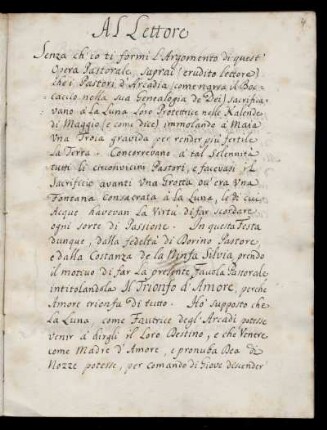 Al Lettore
Senza ch'io ti formi l'Argomento di quest'
Opera Pastorale, saprai (erudito lettore)
che i Pastori d'Arcadia come narra il Boc-
caccio nella sua Genealogia de' Dei, sacrifica-
vano à la Luna loro Protetrice nelle Kalende
di Maggio (e come dice) immolando à Maia
Vna Troia gravida per render più fertile
la Terra. Concorrevano à tal Solennità
tutti li circonvicini Pastori, e facevasi il
Sacrificio avanti Vna Grotta ou'era Vna
Fontana Consacrata à la Luna, le di cui
Acque havevan la Virtù di far scordare
ogni sorte di Passione. In questa Festa
dunque, dalla fedeltà di Borino Pastore
e dalla Costanza de la Ninfa Silvia, prendo
il motiuo di far la presente Fauola Pastorale
intitolandola Il Trionfo d'Amore, perche
Amore trionfa di tutto. Hò supposto che
la Luna come Fautrice degl'Arcadi potesse
venir à dirgli il loro Destino, e che Venere
come Madre d'Amore, e pronuba Dea di
Nozze potesse, per comando di Giove descender